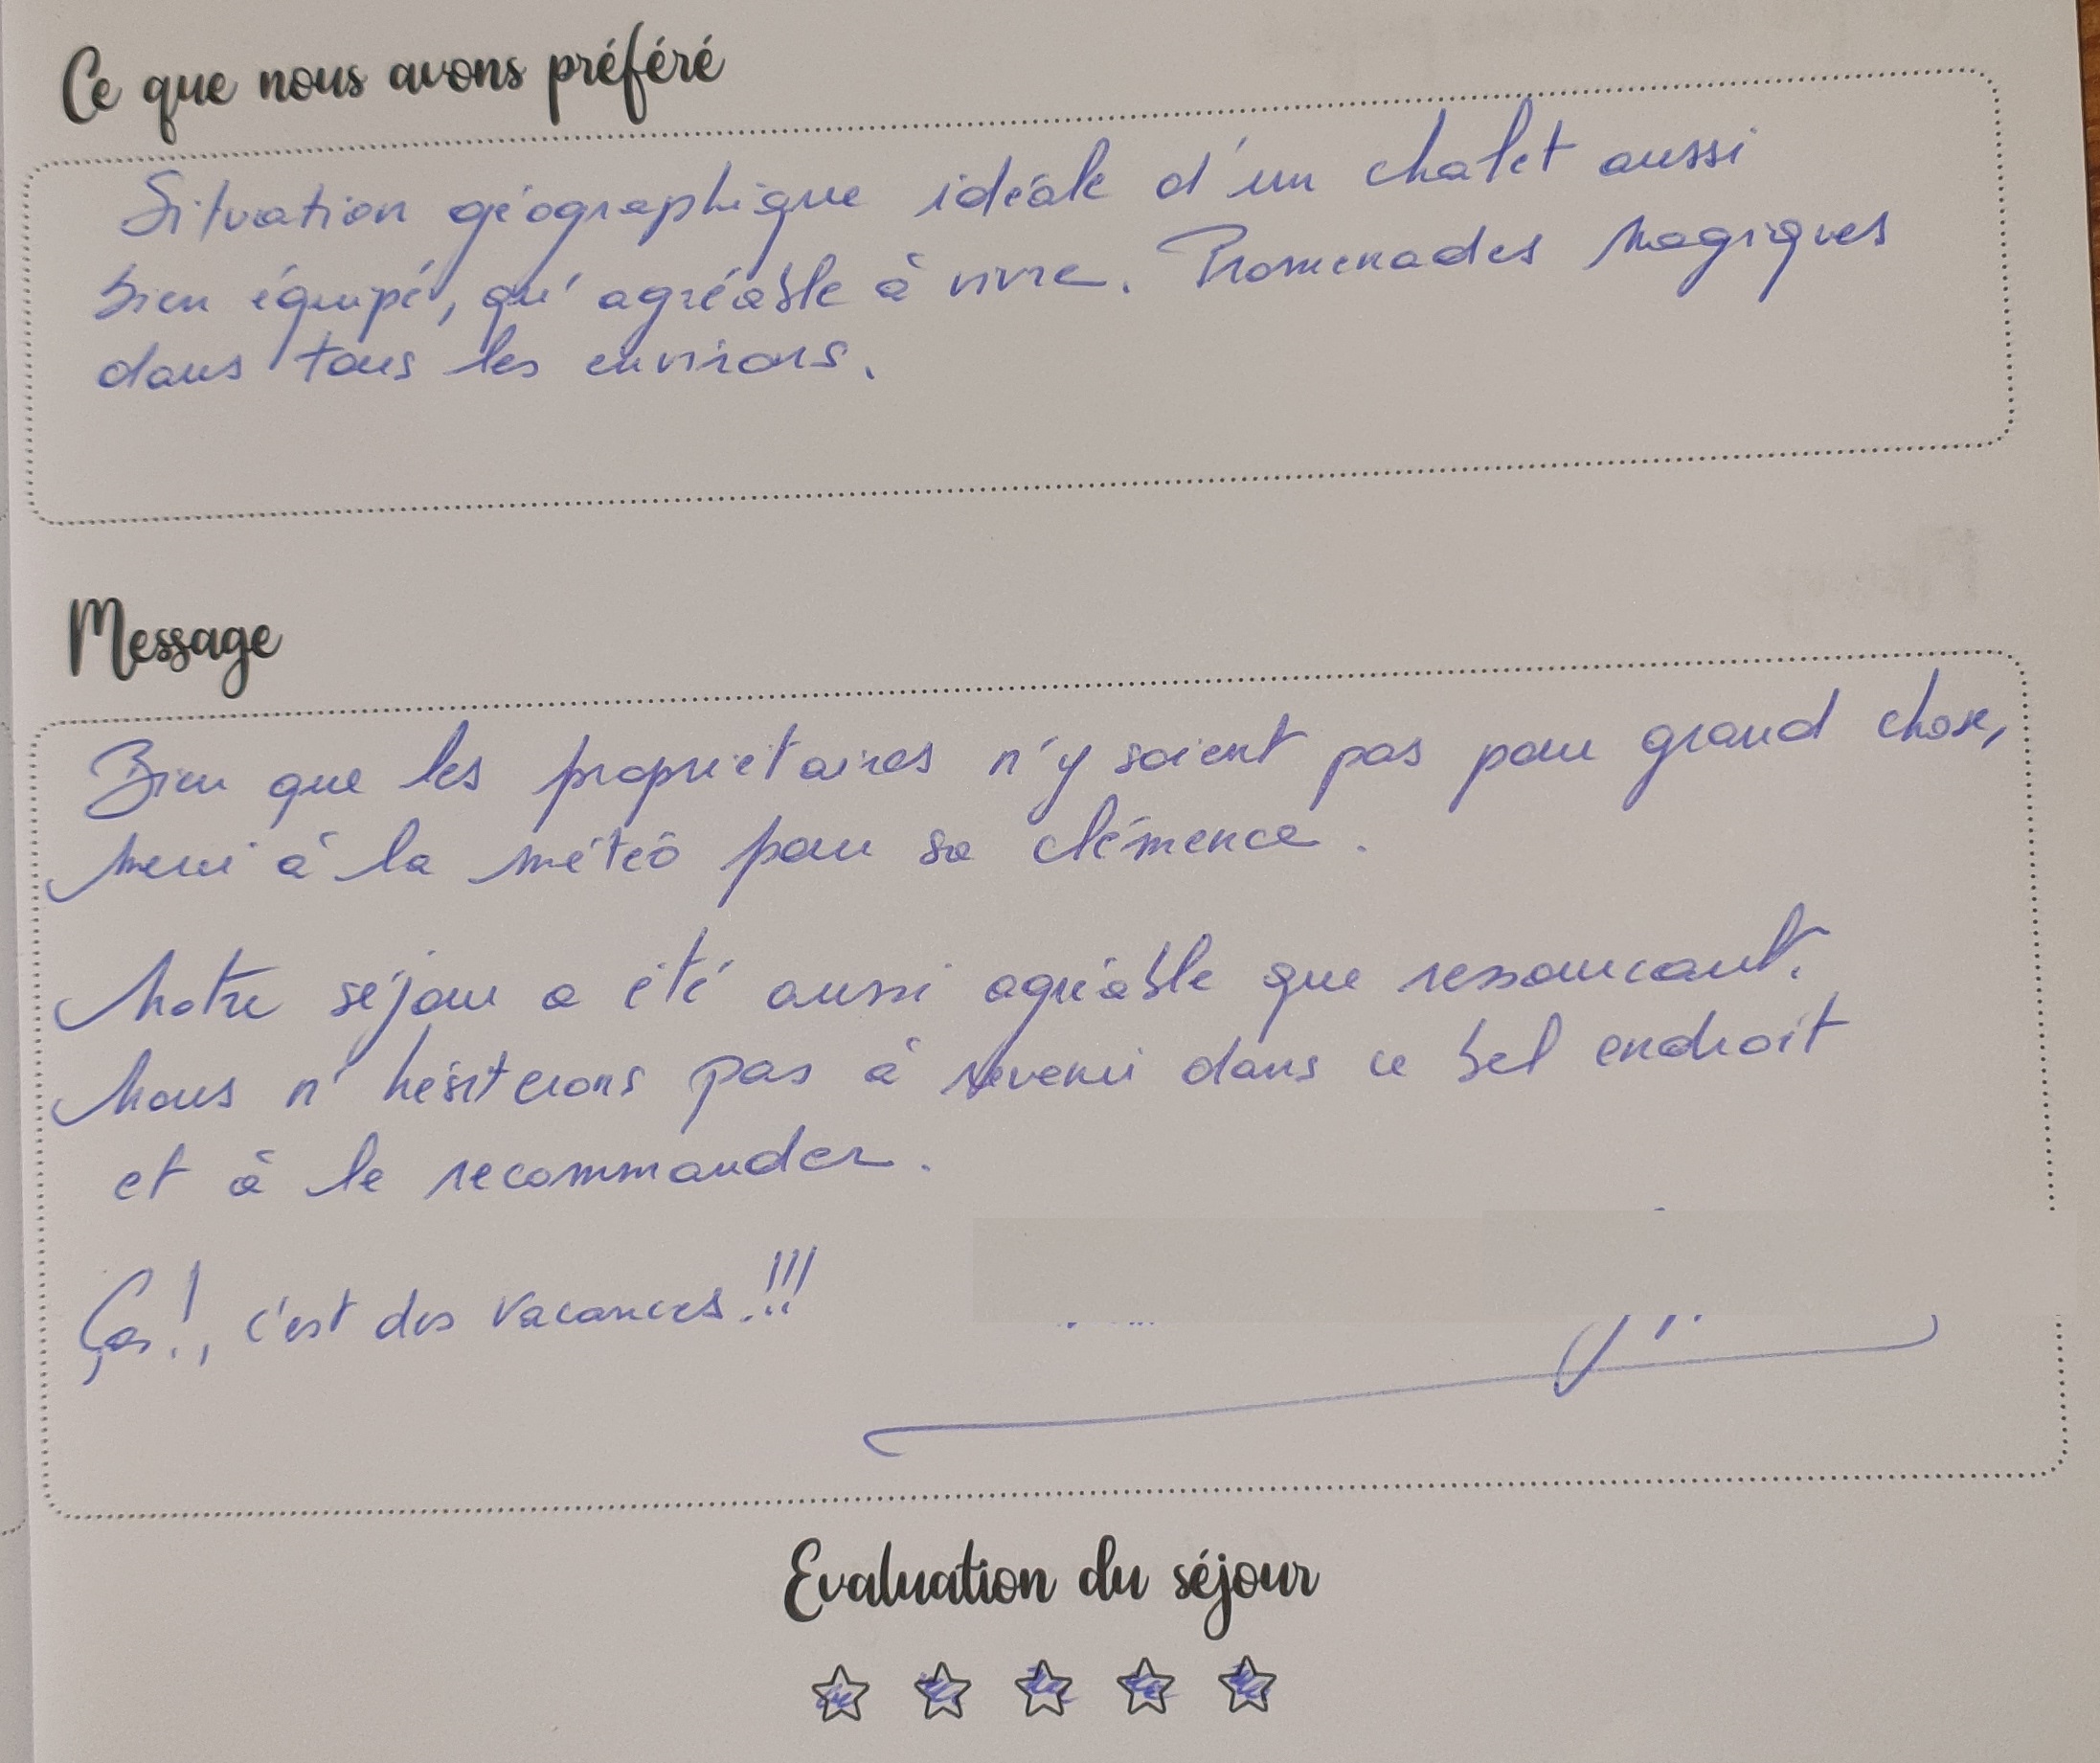 Ce que nous avons préféré
Situation géographique idéale d'un chalet aussi
bien équipé, qu'agréable à vivre. Promenades magiques
dans tous les environs.
Message
Bien que les propriétaires n'y soient pas pour grand chose,
merci à la météo pour sa clémence.
Notre séjour a été aussi agréable que ressourcant.
Nous n'hésiterons pas à revenir dans ce bel endroit
et à le recommander.
Ça!, c'est des vacances.!!!
Evaluation du séjour